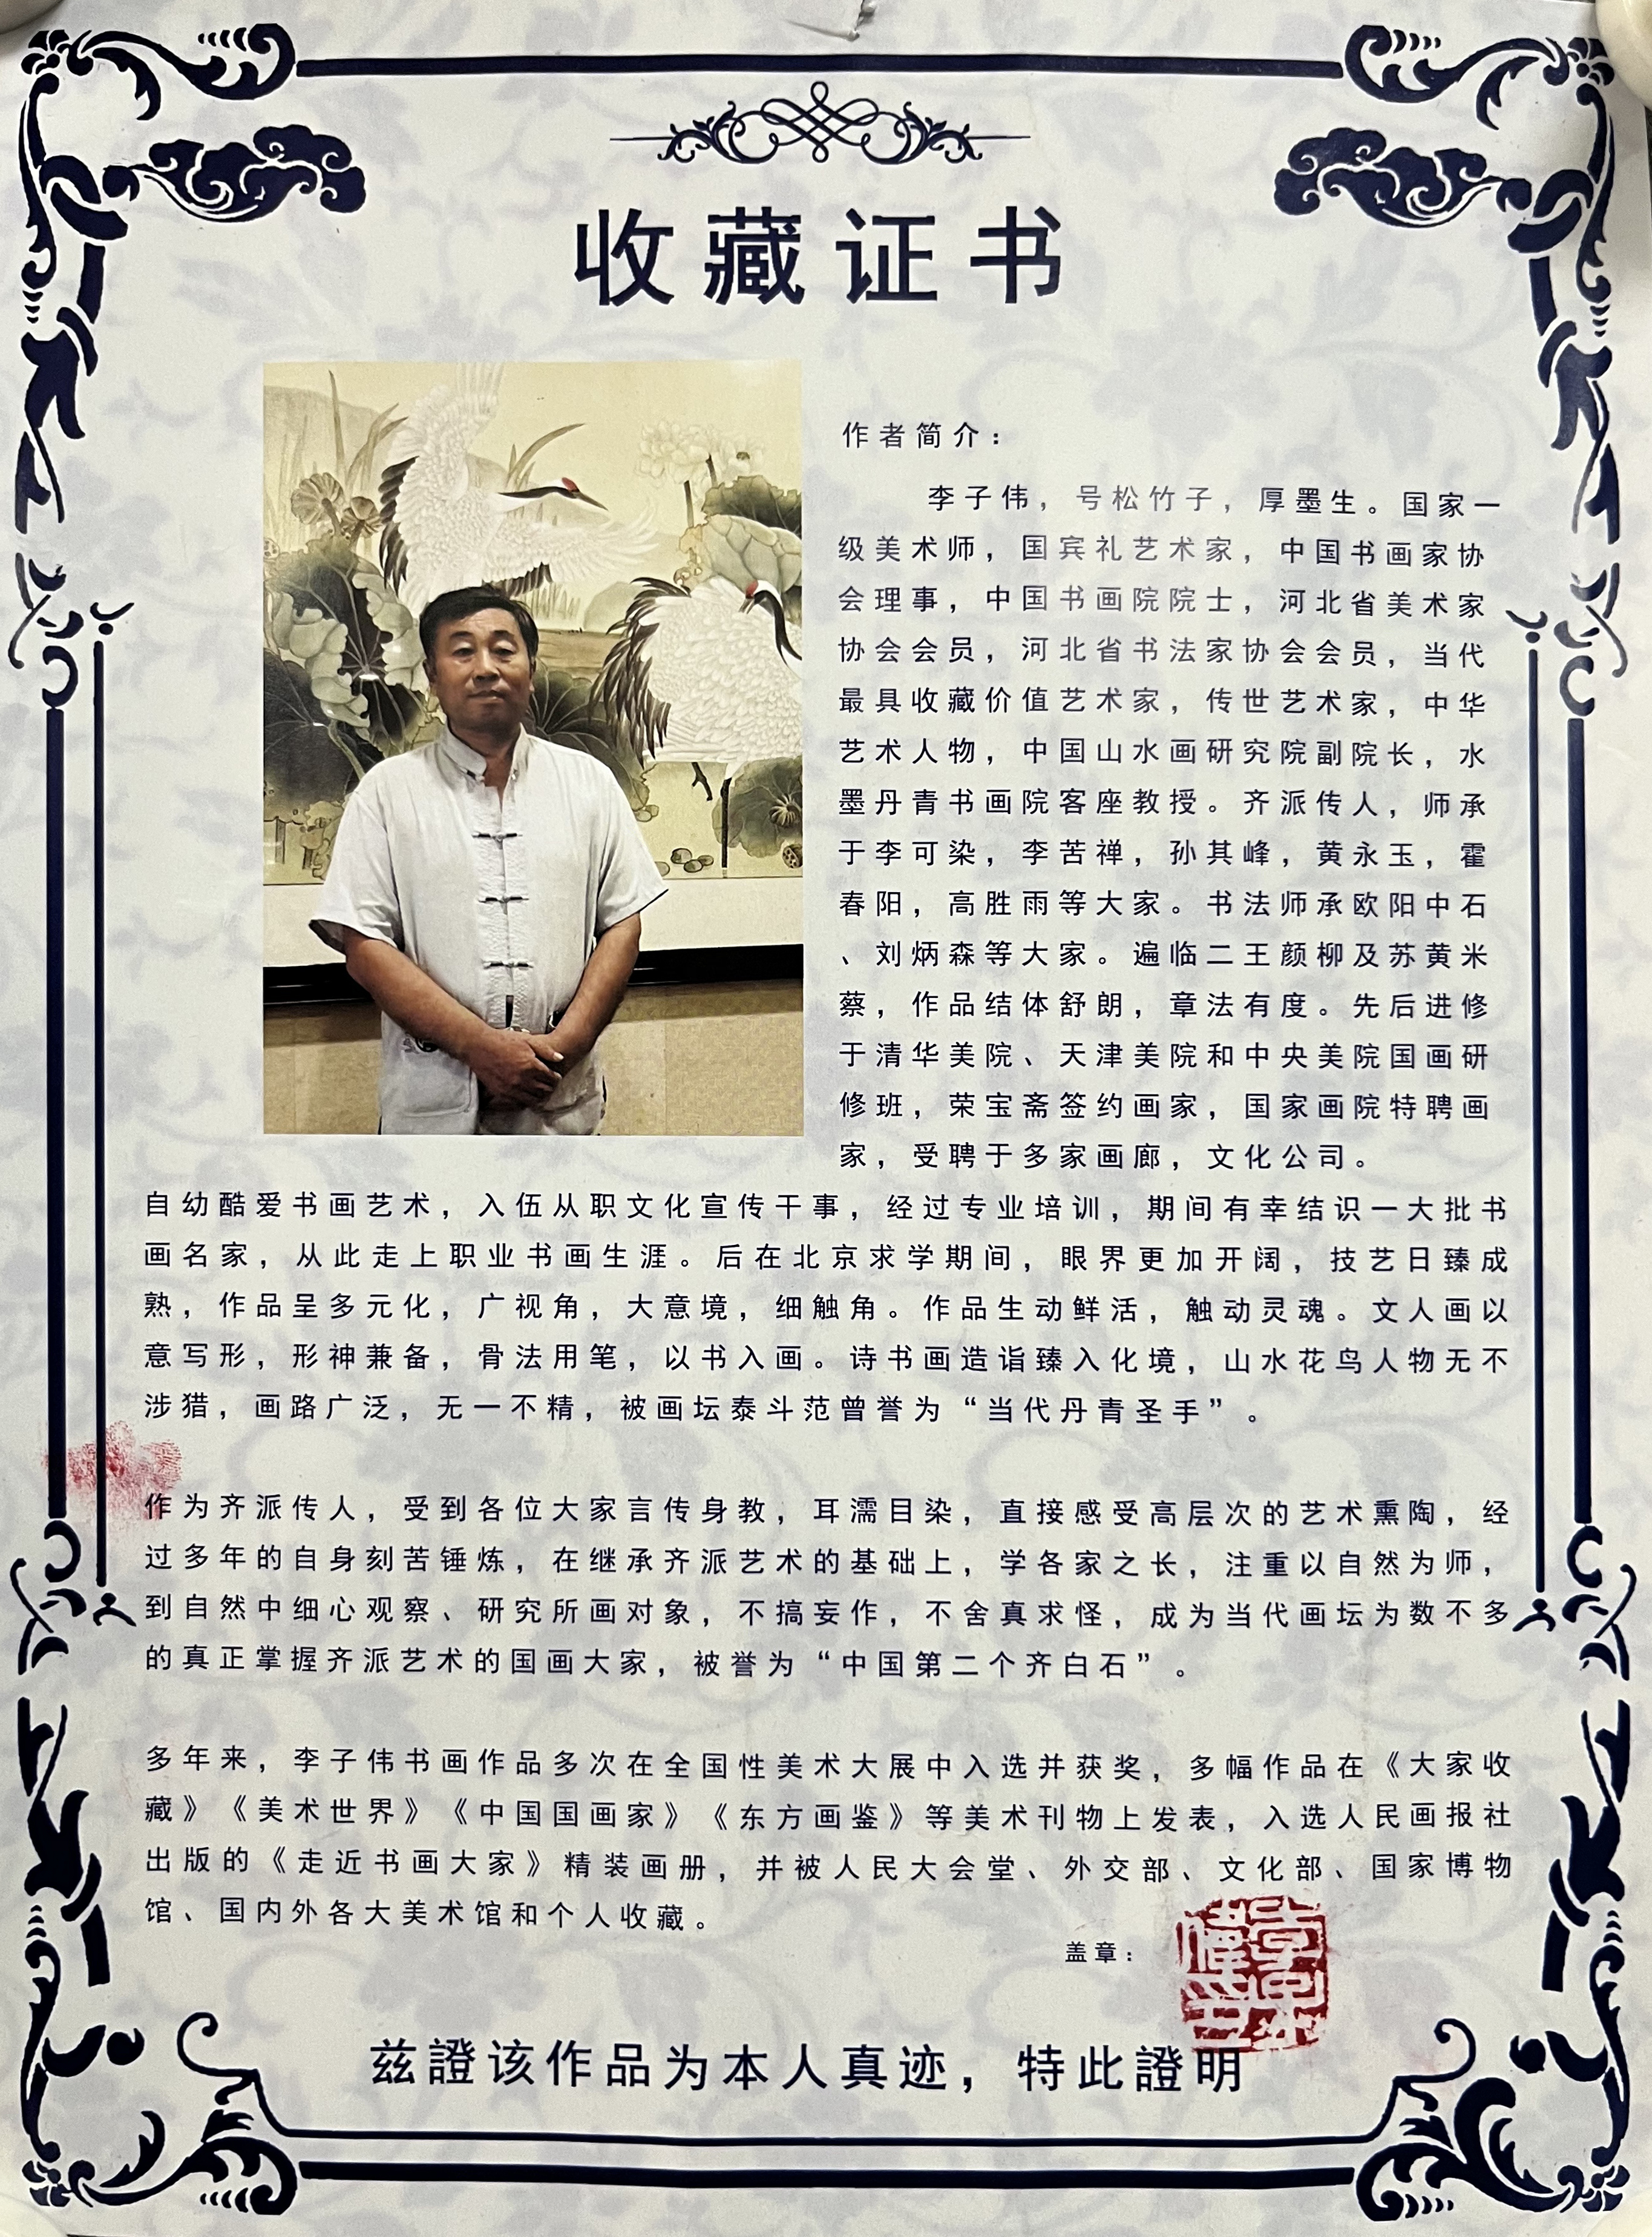 收藏证书
作者简介：
李子伟，号松竹子，厚墨生。国家一
级美术师，国宾礼艺术家，中国书画家协
会理事，中国书画院院士，河北省美术家
协会会员，河北省书法家协会会员，当代
最具收藏价值艺术家，传世艺术家，中华
艺术人物，中国山水画研究院副院长，水
墨丹青书画院客座教授。齐派传人，师承
于李可染，李苦禅，孙其峰，黄永玉，霍
春阳，高胜雨等大家。书法师承欧阳中石
、刘炳森等大家。遍临二王颜柳及苏黄米
蔡，作品结体舒朗，章法有度。先后进修
于清华美院、天津美院和中央美院国画研
修班，荣宝斋签约画家，国家画院特聘画
家，受聘于多家画廊，文化公司。
自幼酷爱书画艺术，入伍从职文化宣传干事，经过专业培训，期间有幸结识一大批书
画名家，从此走上职业书画生涯。后在北京求学期间，眼界更加开阔，技艺日臻成
熟，作品呈多元化，广视角，大意境，细触角。作品生动鲜活，触动灵魂。文人画以
意写形，形神兼备，骨法用笔，以书入画。诗书画造诣臻入化境，山水花鸟人物无不
涉猎，画路广泛，无一不精，被画坛泰斗范曾誉为“当代丹青圣手”。
作为齐派传人，受到各位大家言传身教，耳濡目染，直接感受高层次的艺术熏陶，经
过多年的自身刻苦锤炼，在继承齐派艺术的基础上，学各家之长，注重以自然为师，
到自然中细心观察、研究所画对象，不搞妄作，不舍真求怪，成为当代画坛为数不多
的真正掌握齐派艺术的国画大家，被誉为“中国第二个齐白石”。
多年来，李子伟书画作品多次在全国性美术大展中入选并获奖，多幅作品在《大家收
藏》《美术世界》《中国国画家》《东方画鉴》等美术刊物上发表，入选人民画报社
出版的《走近书画大家》精装画册，并被人民大会堂、外交部、文化部、国家博物
馆、国内外各大美术馆和个人收藏。
盖章：
兹證该作品为本人真迹，特此證明